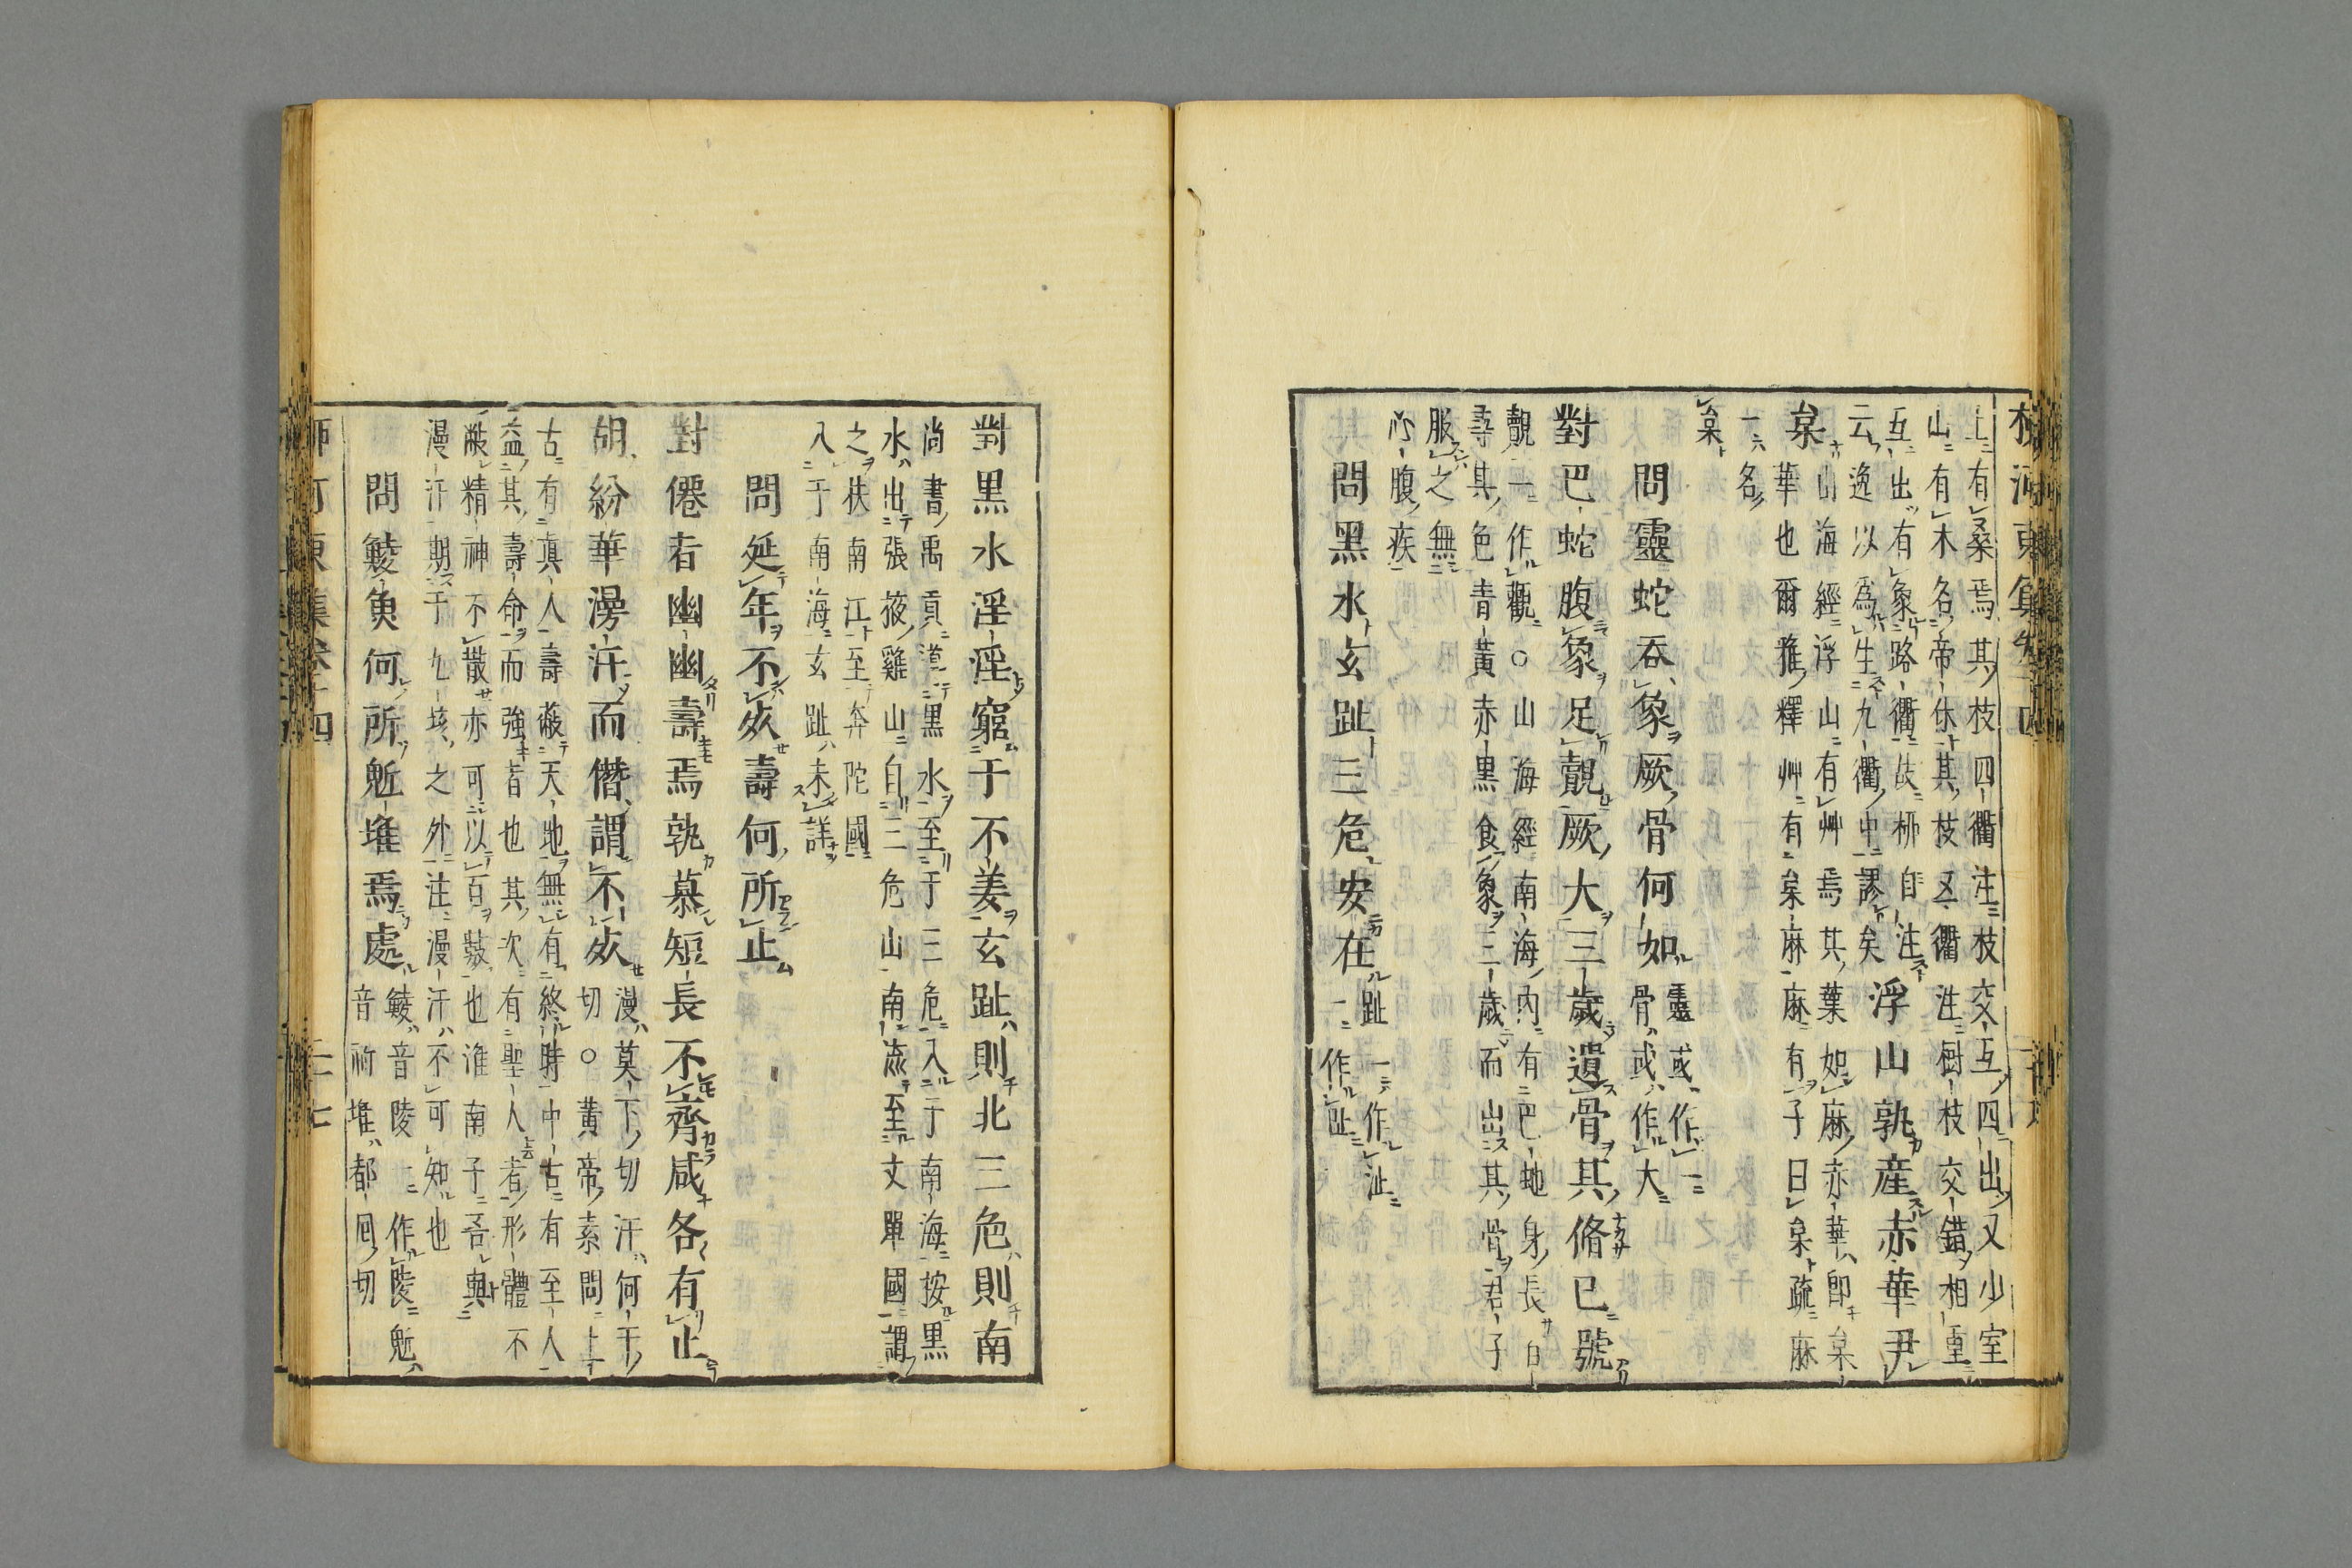 上有桑焉其枝四衢注枝交互四出又少室
山有木名帝休其枝五衢注樹枝交錯相重
互出有象路衢故柳自注
云逸以為生九衢中謬矣
浮山孰產赤華尹
枲
山海經浮山有艸焉其葉如麻赤華即枲
華也爾雅釋艸有枲麻麻有子曰枲疏麻
一名
枲
問靈蛇吞象厥骨何如
靈或作一
骨或作大
對巴蛇腹象足覿厥大三歲遺骨其脩已號
覿一作觀○山海經南海內有巴虵身長百
尋其色青黃赤黒食象三歲而出其骨君子
服之無
心腹疾
問黒水玄趾三危安在
趾一作沚
一作趾
對黒水淫淫窮于不姜玄趾則北三危則南
尚書禹貢導黒水至于三危入于南海按黒
水出張掖雞山自三危山南流至文單國謂
之扶南江至奔陀國
入于南海玄趾未詳
問延年不死壽何所止
對僊者幽幽壽焉孰慕短長不齊咸各有止
胡紛華漫汗而僭謂不死
漫莫下切汗何干
切○黃帝素問上
古有真人壽蔽天地無有終時中古有至人
益其壽命而強者也其次有聖人者形體不
敝精神不散亦可以百數也淮南子吾與
漫汗期于九垓之外注漫汗不可知也
問鯪魚何所鬿堆焉處
鯪音陵一作陵鬿
音祈堆都回切